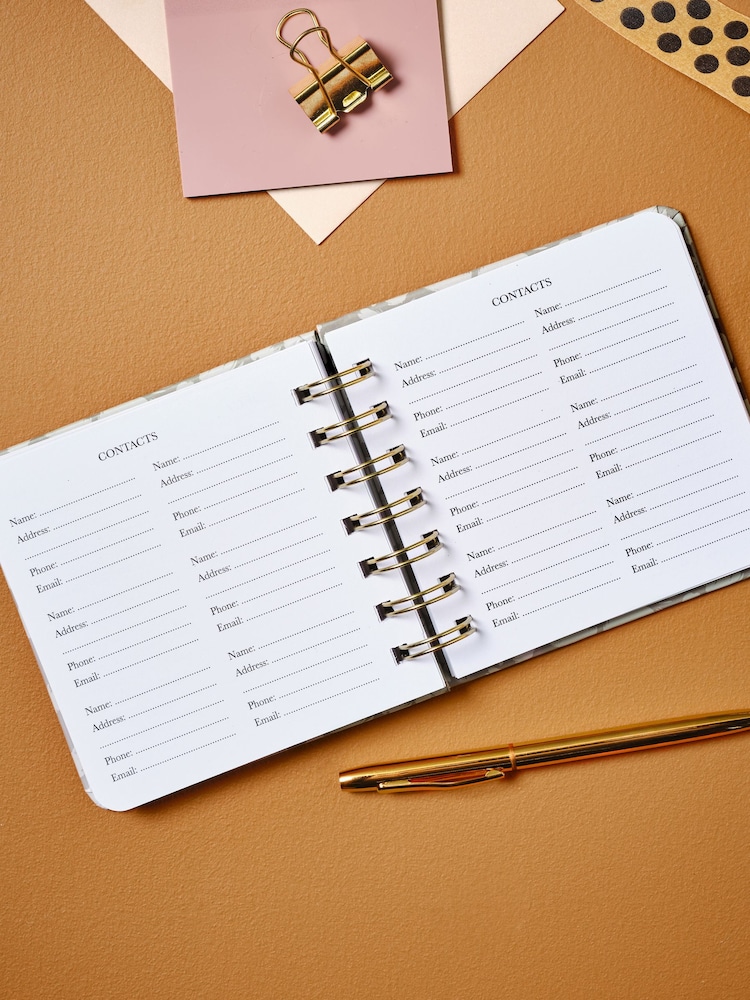 CONTACTS
Name:
Address:
Phone:
Email:
Name:
Address:
Phone:
Email:
Name:
Address:
Phone:
Email:
Name:
Address:
Phone:
Email:
Name:
Address:
Phone:
Email:
Name:
Address:
Phone:
Email:
CONTACTS
Name:
Address:
Phone:
Email:
Name:
Address:
Phone:
Email:
Name:
Address:
Phone:
Email:
Name:
Address:
Phone:
Email:
Name:
Address:
Phone:
Email:
Name:
Address:
Phone:
Email: